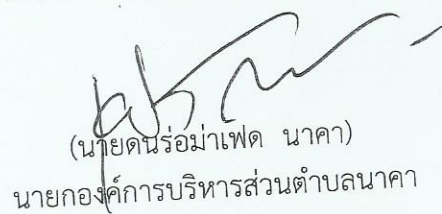 (นายดนร่อม่าเฟด นาคา)
นายกองค์การบริหารส่วนตำบลนาคา